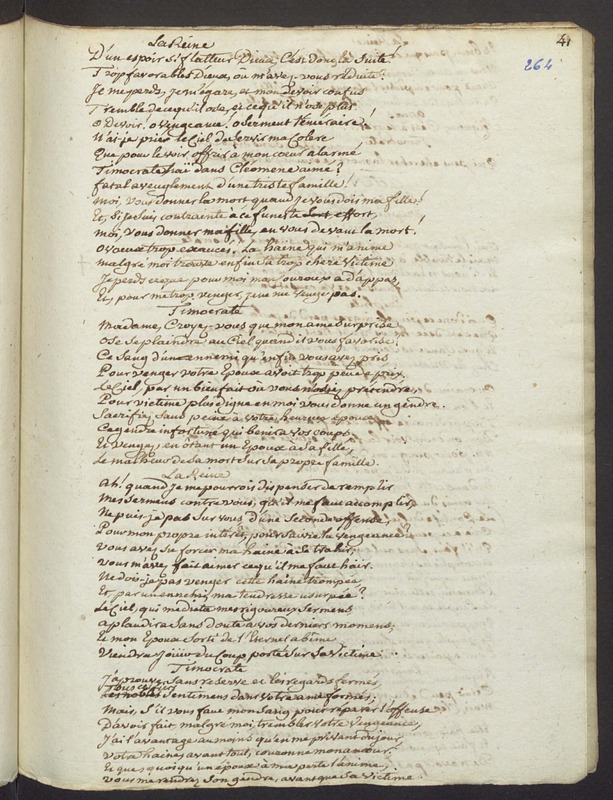 41
264
La Reine
D'un espoir si flatteur Dieux, C'est donc là Suite!
Trop favorables Dieux, où m'avez-vous réduite!
Je me perds, je m'egare, et mon devoir confus
Tremble de ce qu'il ose, et ce qu'il n'ose plus
o Devoir! o vengeance! o serment téméraire!
N'ai-je prié le Ciel de servir ma Colere
Que pour le voir offrir à mon coeur alarmé
Timocrate haï dans Cléomene aimé?
fatal aveuglement d'une triste famille!
moi, vous donner la mort quand je vous dois ma fille!
Et, si je suis contrainte à ce funeste effort,
moi, vous donner ma fille, en vous devant la mort!
o voeux trop exaucés. La haine qui m'anime
malgré moi trouve enfin à trop chere victime
Je perds ce que pour moi mon couroux a d'appas,
Et, pour me trop venger, je ne me venge pas.
Timocrate
Madame, Croyez-vous que mon ame surprise
Ose se plaindre au Ciel quand il vous favorise?
Ce Sang d'un ennemi qu'enfin vous avez pris
Pour venger votre Epoux avoit trop peu de prix,
Le Ciel, par un bienfait où vous n'osiez prétendre,
Pour victime plus digne en moi vous donne un gendre.
Sacrifiez sans peine à votre heureux epoux
Ce gendre infortuné qui benira vos coups,
Et vengez en ôtant un Epoux à sa fille,
Le malheur de sa mort sur sa propre famille.
La Reine
Ah! quand je me pourrois dispenser de remplir
Mes sermens contre vous, qu'il me faut accomplir,
Ne puis-je pas sur vous d'une seconde offense,
Pour mon propre intérêt, poursuivre la vengeance?
vous avez su forcer ma haine à se trahir;
vous m'avez fait aimer ce qu'il me faut haïr.
Ne dois-je pas venger cette haine trompée,
Et par un ennemi ma tendresse usurpée?
Le Ciel, qui me dicta mes rigoureux sermens
aplaudira sans doute à vos derniers momens;
Et mon Epoux sorti de l'Eternel abime
Viendra jouir du Coup porté sur sa victime.
Timocrate
J'aprouve sans reserve et les regards fermés
Tous ces sentimens dans votre ame formés;
Mais, s'il vous faut mon sang pour réparer l'offense
D'avoir fait malgré moi trembler votre vengeance,
J'ai l'avantage au moins qu'en me privant du jour
votre haine, avant tout, couronne mon amour.
Et que, quoiqu'un epoux à ma perte l'anime,
vous me rendrez son gendre, avant que sa victime.